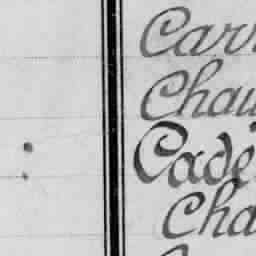 Carr
Chau
Cade
Cha